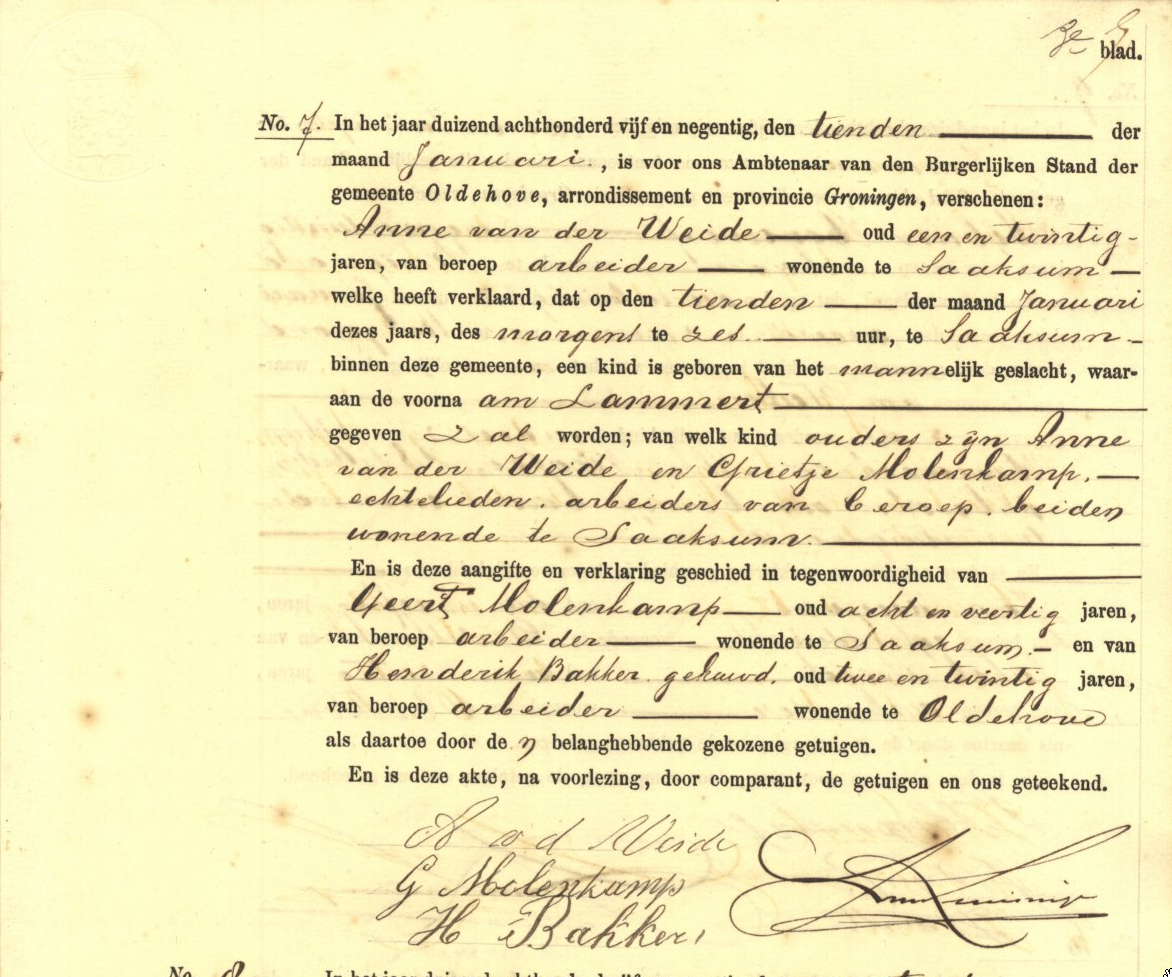 3e blad.
No. 7. In het jaar duizend achthonderd vijf en negentig, den tienden der
maand Januari, is voor ons Ambtenaar van den Burgerlijken Stand der
gemeente Oldehove, arrondissement en provincie Groningen, verschenen:
Anne van der Weide oud een en twintig
jaren, van beroep arbeider wonende te Saaksum
welke heeft verklaard, dat op den tienden der maand Januari
dezes jaars, des morgens te zes uur, te Saaksum
binnen deze gemeente, een kind is geboren van het mannelijk geslacht, waar-
aan de voorna am Lammert
gegeven zal worden; van welk kind ouders zijn Anne
van der Weide en Grietje Molenkamp,
echtelieden, arbeiders van beroep, beiden
wonende te Saaksum.
En is deze aangifte en verklaring geschied in tegenwoordigheid van
Geert Molenkamp oud acht en veertig jaren,
van beroep arbeider wonende te Saaksum, en van
Henderik Bakker gehuwd, oud twee en twintig jaren,
van beroep arbeider wonende te Oldehove
als daartoe door de n belanghebbende gekozene getuigen.
En is deze akte, na voorlezing, door comparant, de getuigen en ons geteekend.
A v d Weide
G Molenkamp
H Bakker